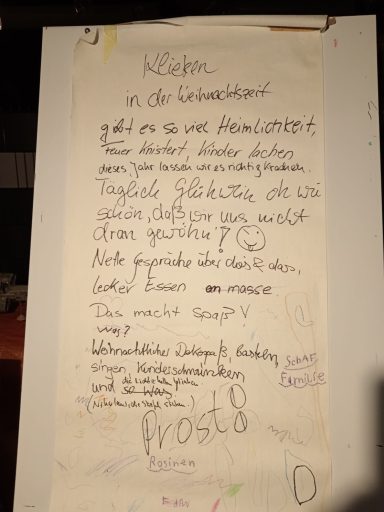 Klieken
in der Weihnachtszeit
gibt es so viel Heimlichkeit,
Feuer knistert, Kinder lachen
dieses Jahr lassen wir es richtig krachen.
Täglich Glühwein oh wie
schön, daß wir uns nicht
dran gewöhn'!
Nette Gespräche über dies & das,
lecker Essen en masse
Das macht Spaß!
Was?
Weihnachtlicher Dekospaß, basteln,
singen,
und
Prost!
SCHAF
Familie
Rosinen